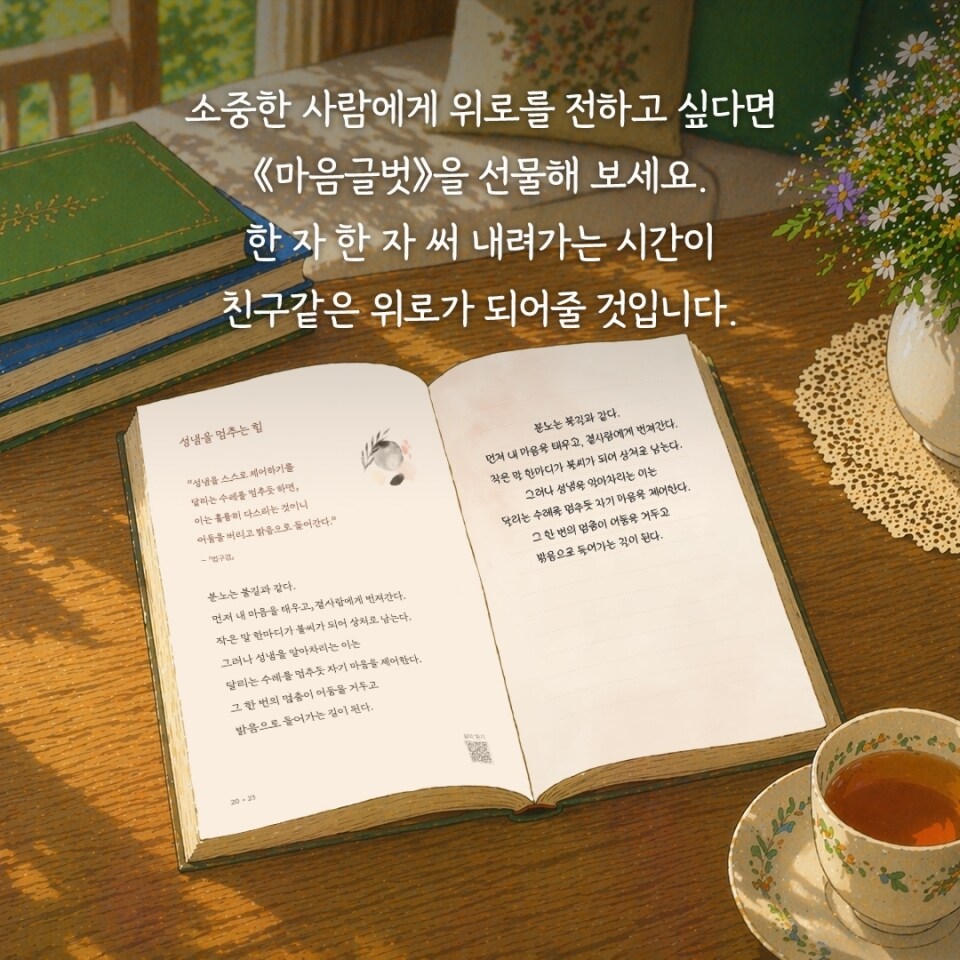 소중한 사람에게 위로를 전하고 싶다면
《마음글벗》을 선물해 보세요.
한 자 한 자 써 내려가는 시간이
친구같은 위로가 되어줄 것입니다.
성냄을 멈추는 힘
"성냄을 스스로 제어하기를
달리는 수레를 멈추듯 하면,
이는 훌륭히 다스리는 것이니
어둠을 버리고 밝음으로 들어간다."
- 『법구경』
분노는 불길과 같다.
먼저 내 마음을 태우고, 곁사람에게 번져간다.
작은 말 한마디가 불씨가 되어 상처로 남는다.
그러나 성냄을 알아차리는 이는
달리는 수레를 멈추듯 자기 마음을 제어한다.
그 한 번의 멈춤이 어둠을 거두고
밝음으로 들어가는 길이 된다.
분노는 불길과 같다.
먼저 내 마음을 태우고, 곁사람에게 번져간다.
작은 말 한마디가 불씨가 되어 상처로 남는다.
그러나 성냄을 알아차리는 이는
달리는 수레를 멈추듯 자기 마음을 제어한다.
그 한 번의 멈춤이 어둠을 거두고
밝음으로 들어가는 길이 된다.